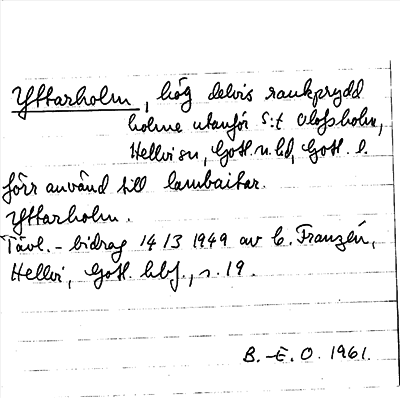 Ytterholm, hög delvis raukprydd
holme utanför S:t Olofsholm,
Hellvi sn, Gotl. n. hd, Gotl. l.
förr använd till lambeitar.
Ytterholm.
Tävl.-bidrag 14/3 1949 av C. Franzén,
Hellvi, Gotl. hbf., s. 19.
B.-E. O. 1961.